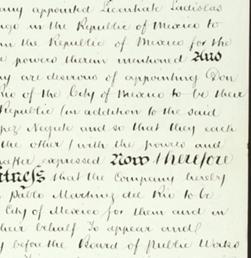 any appointed Licentiate Ladislas
ago in the Republic of Mexico to
in the Republic of Mexico for the
powers therein mentioned And
ny are desirous of appointing Don
Rio of the City of Mexico to be their
Republic (in addition to the said
pez Negrete and so that they each
the other) with the powers and
nafter expressed Now therefore
itness that the Company hereby
n Pablo Martinez del Rio to be
City of Mexico for them and in
heir behalf To appear and
y before the Board of Public Works